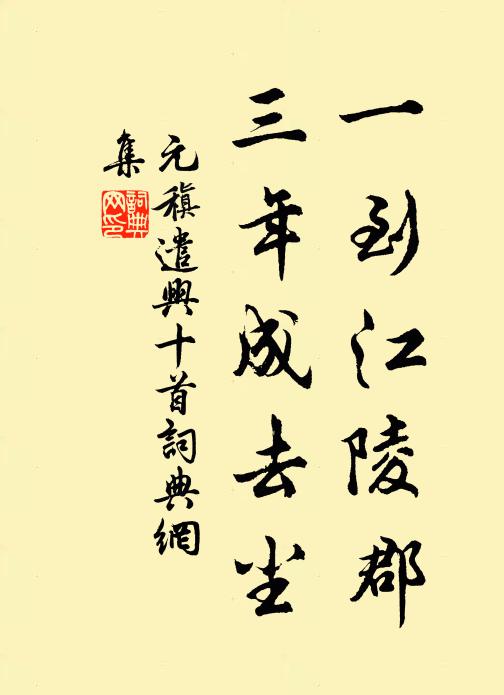 一到江陵郡
三年成去尘
元稹遣興十首詞典網
集
詞典
网印